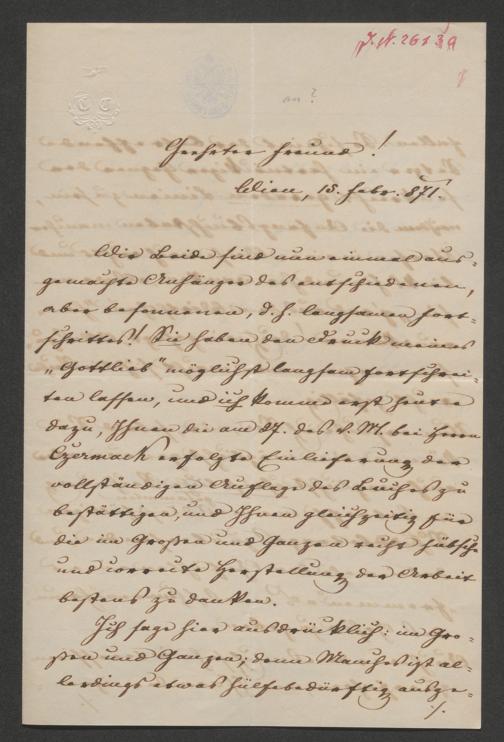 J. N. 26139
an?
Geehrter Freund!
Wien, 15. Febr. 871.
Wir Beide sind nun einmal aus-
gemachte Anhänger des entschiedenen,
aber besonnenen, d. h. langsamen Fort-
schrittes! Sie haben den Druck meines
„Gottlieb" möglichst langsam fortschrei-
ten lassen, und ich komme erst heute
dazu, Ihnen die am 27. des v. M. bei Herrn
Czermack erfolgte Einlieferung der
vollständigen Auflage des Buches zu
bestättigen, und Ihnen gleichzeitig für
die im Großen und Ganzen recht hübsche
und correcte Herstellung der Arbeit
bestens zu danken.
Ich sage hier ausdrücklich: im Gro-
ßen und Ganzen; denn Manches ist al-
lerdings etwas hülfsbedürftig ausge-
./.